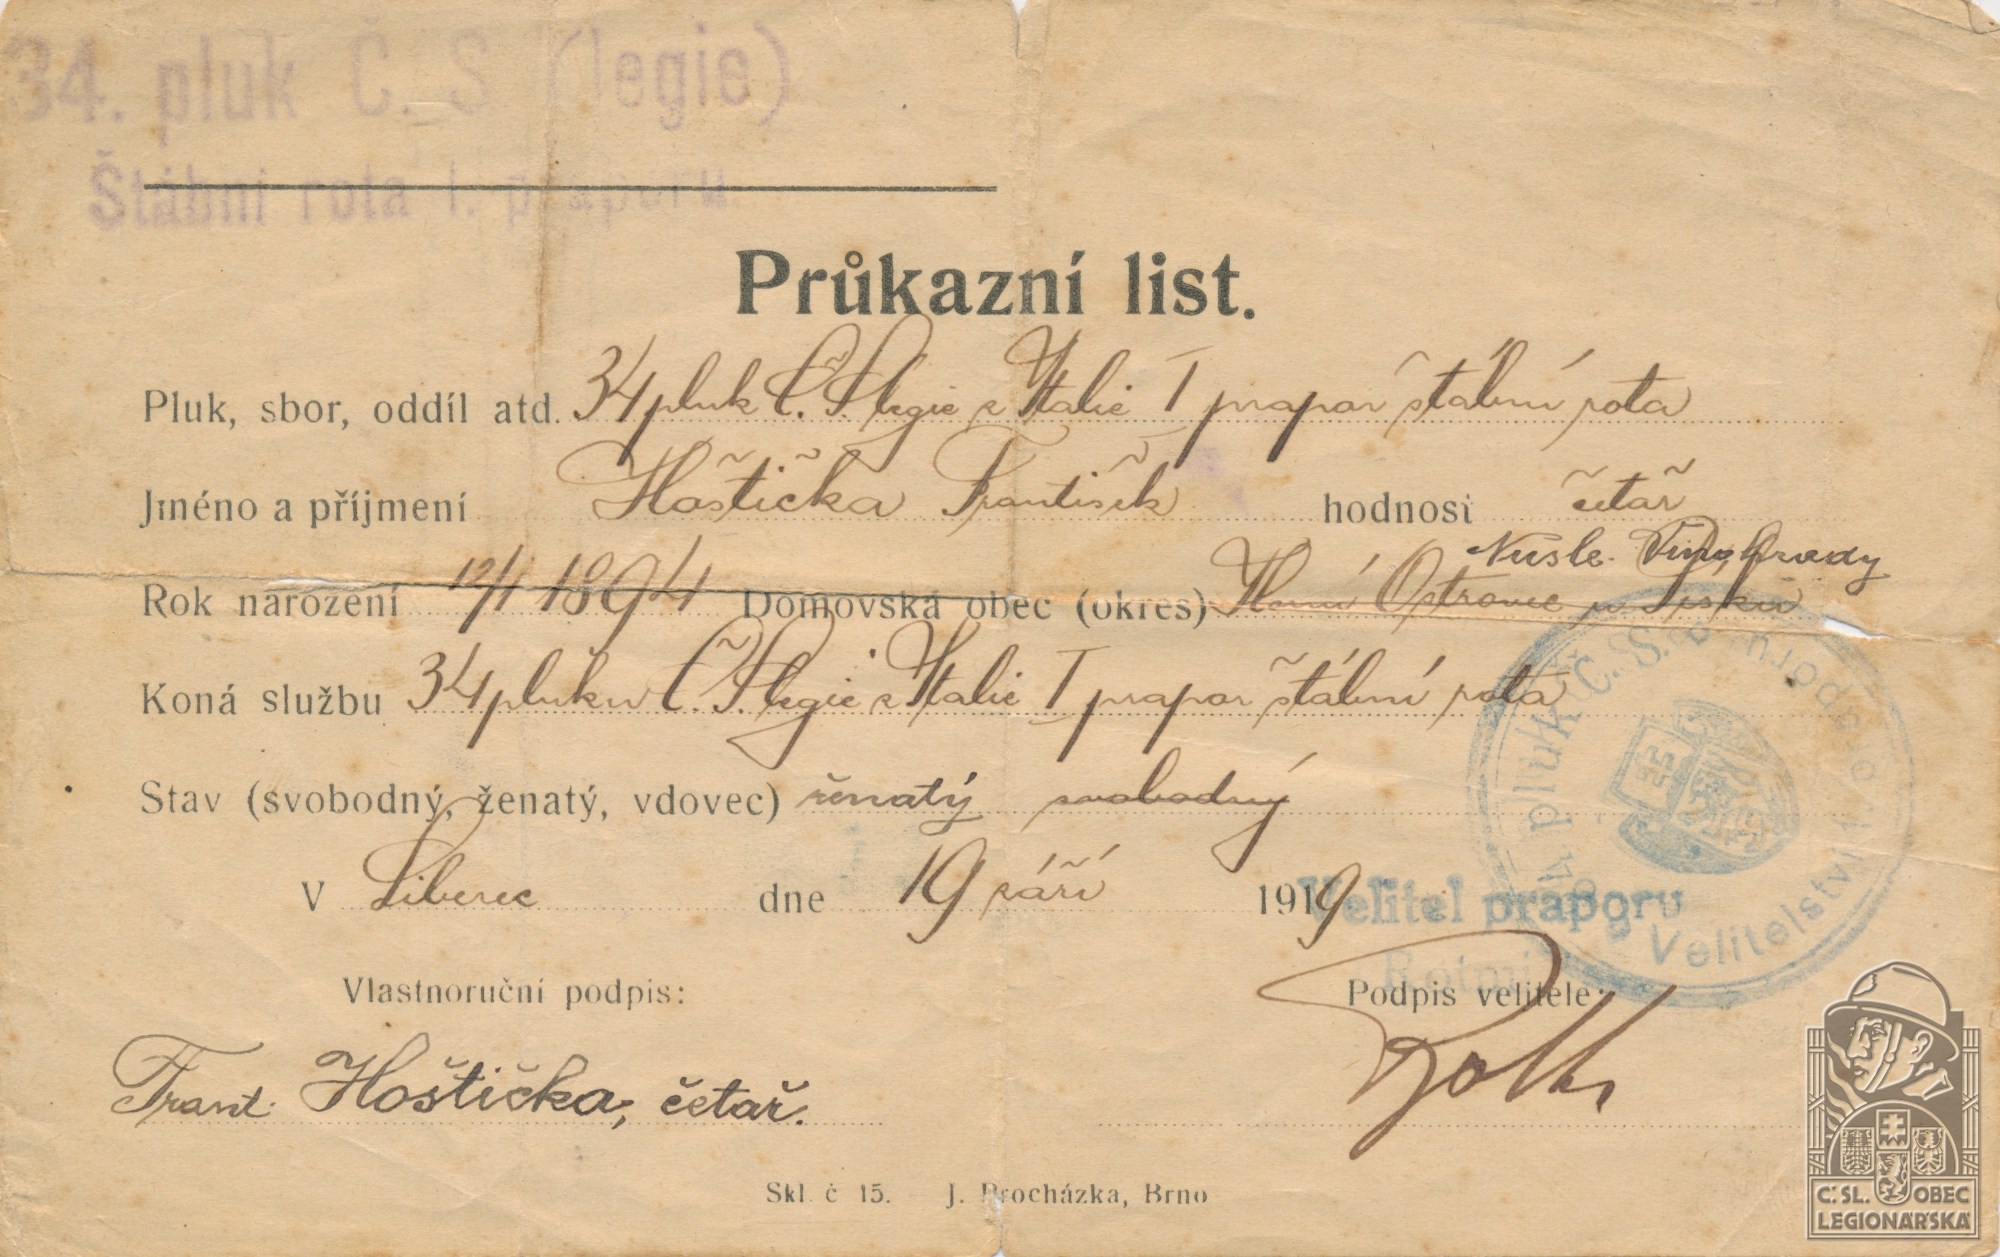 34. pluk Č. S (legie)
Štábní rota I. praporu
Průkazní list.
Pluk, sbor, oddíl atd. 34 pluk Č. S. legie z Italie I prapor štábní rota
Jméno a příjmení Hoštička František hodnost četař
Nusle. Vinohrady
Rok narození 12/1 1894 Domovská obec (okres) Ostrovec u Písku
Koná službu 34 pluku Č. S. legie z Italie I prapor štábní rota
Stav (svobodný, ženatý, vdovec) ženatý svobodný
V Liberec dne 19 září 1919
Velitel praporu
34. pluk Č. S. Velitelství
Vlastnoruční podpis: Podpis velitele:
Frant. Hoštička, četař.
Skl. č 15. J. Procházka, Brno
Č. SL. OBEC
LEGIONÁŘSKÁ